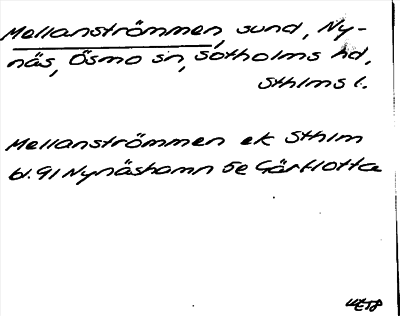 Mellanströmmen, sund, Ny-
näs, Ösmo sn, Sotholms hd,
Sthlms l.
Mellanströmmen ek Sthlm
bl. 91 Nynäshamn 5e Gårflotta